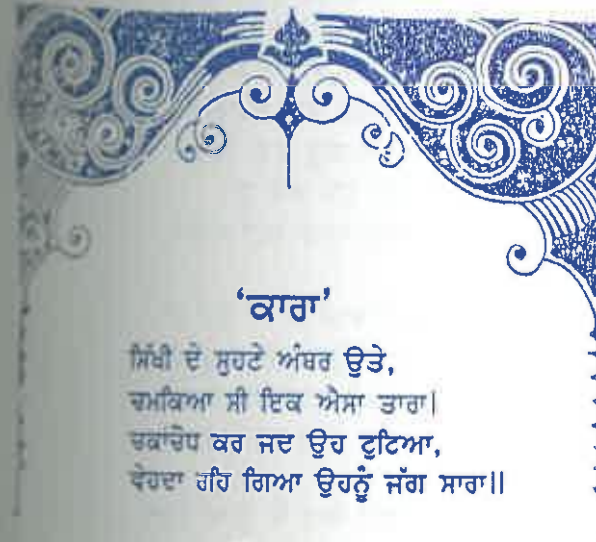 ‘ਕਾਰਾ’
ਸਿੱਖੀ ਦੇ ਸੁਹਣੇ ਅੰਬਰ ਉਤੇ,
ਚਮਕਿਆ ਸੀ ਇਕ ਐਸਾ ਤਾਰਾ|
ਚਕਾਂਚੋਧ ਕਰ ਜਦ ਉਹ ਟੁਟਿਆ,
ਵੇਹਦਾ ਰਹਿ ਗਿਆ ਉਹਨੂੰ ਜੱਗ ਸਾਰਾ||